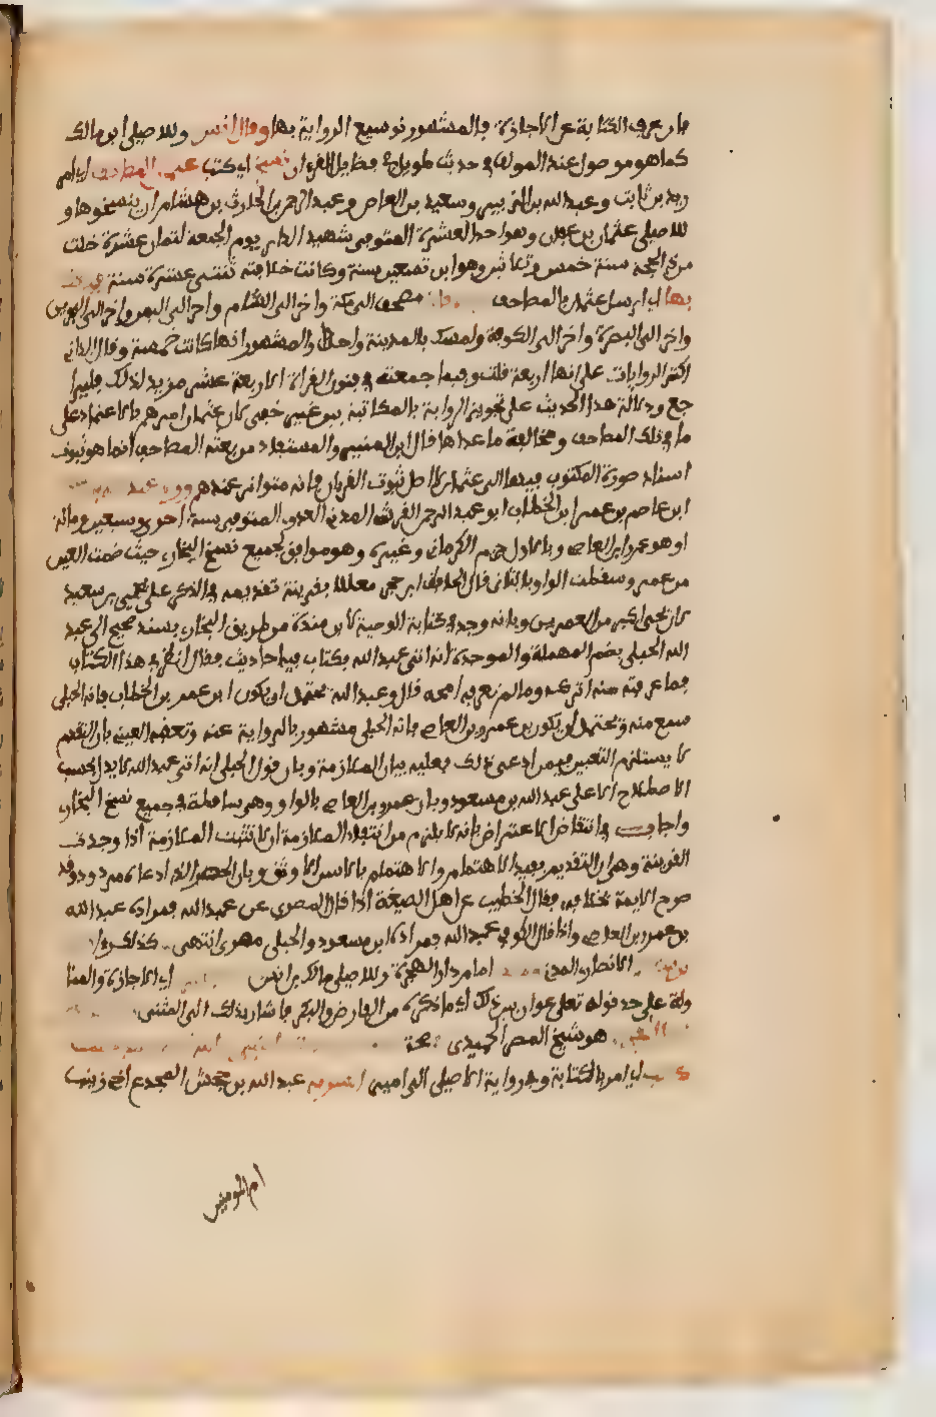 بان عرف الكتابة عن الاجازة بالمشهور توسيع الرواية بها وقال انس وللاصيلي ابن مالك
كما هو موصول عند المولف في حديث طويل في فضايل القرءان نسخ اي كتب عثمن المصاحف اي امر
زيد بن ثابت وعبد الله بن الزبير وسعيد بن العاص وعبد الرحمن بن الحارث بن هشام ان ينسخوها و
للاصيلي عثمان بن عفان وهو احد العشرة المتوفى شهيد الدار يوم الجمعة لثمان عشرة خلت
من ذي الحجة سنة خمس وثلاثين وهو ابن تسعين سنة وكانت خلافته ثنتي عشرة سنة فبعث
بها اي ارسل عثمان بالمصاحف مصحف الى مكة واخر الى الشام واخر الى اليمن واخر الى البحرين
واخر الى البصرة واخر الى الكوفة وامسك بالمدينة واحدا والمشهور انها كانت خمسة وقال الداني
اكثر الروايات على انها اربعة قلت وفيما جمعته في فنون القراات الاربعة عشر مزيد لذلك فليرا
جع ودلالة هذا الحديث على تجويز الرواية بالمكاتبة بين غير خفي لان عثمان امرهم بالاعتماد على
ما في تلك المصاحف ومخالفة ما عداها قال ابن المنير والمستفاد من بعثه المصاحف انما هو ثبوت
اسناد صورة المكتوب فيها الى عثمان لا اصل ثبوت القرءان فانه متواتر عندهم وراى عبد الله
ابن عاصم بن عمر ابن الخطاب ابو عبد الرحمن القرشي المدني العدوي المتوفى سنة احدى وسبعين ومائة
او هو عمرو ابن العاص وبالاول جزم الكرماني وغيره وهو موافق لجميع نسخ البخاري حيث ضمت العين
من عمر وسقطت الواو بالثاني قال الحافظ ابن حجر معللا بقرينة تقديمه في الذكر على يحيى بن سعيد
لان يحيى اكبر من العمري وبانه وجد في كتاب الوصية لابن منده من طريق البخاري بسند صحيح الى عبد
الله الحبلي بضم المهملة والموحدة انه اتى عبد الله بكتاب فيه احاديث فقال انظر في هذا الكتاب
فما عرفته منه اتركه وما لم تعرفه امحه قال وعبد الله يحتمل ان يكون ابن عمر بن الخطاب فانه الحبلي
سمع منه ويحتمل ان يكون بن عمرو بن العاص فانه الحبلي مشهور بالرواية عنه وتعقبه العيني بان التقدم
لا يستلزم التعيين فمن ادعى ذلك فعليه بيان الملازمة وبان قول الحبلي انه اتى عبد الله لا يدل بحسب
الاصطلاح الا على عبد الله بن مسعود وبان عمرو بن العاص بالواو وهي ساقطة في جميع نسخ البخاري
واجاب في انتقاض الاعتراض بانه لا يلزم من انتفاء الملازمة ان لا تثبت الملازمة اذا وجدت
القرينة وهي ان التقديم يفيد الاهتمام والاهتمام بالاسن الاوثق وبان الحصر الذي ادعاه مردود وقد
صرح الايمة بخلافه فقال الخطيب عن اهل الصيغة اذا قال المصري عن عبد الله فمراده عبد الله
بن عمرو بن العاص واذا قال الكوفي عبد الله فمراده ابن مسعود والحبلي مصري انتهى وكذلك راى
يحيى بن سعيد الانصاري المدني امام دار الهجرة وللاصيلي مالك بن انس اي الاجازة والمنا
ولة على حد قوله تعلى عوان بين ذلك اي ما ذكر من الفارض والبكر فاشار بذلك الى المثنى
هو شيخ المص الحميدي
كتب اي امر بالكتابة وفي رواية الاصيلي الى امير السرية عبد الله بن جحش المجدع اخي زينب
ام المومنين